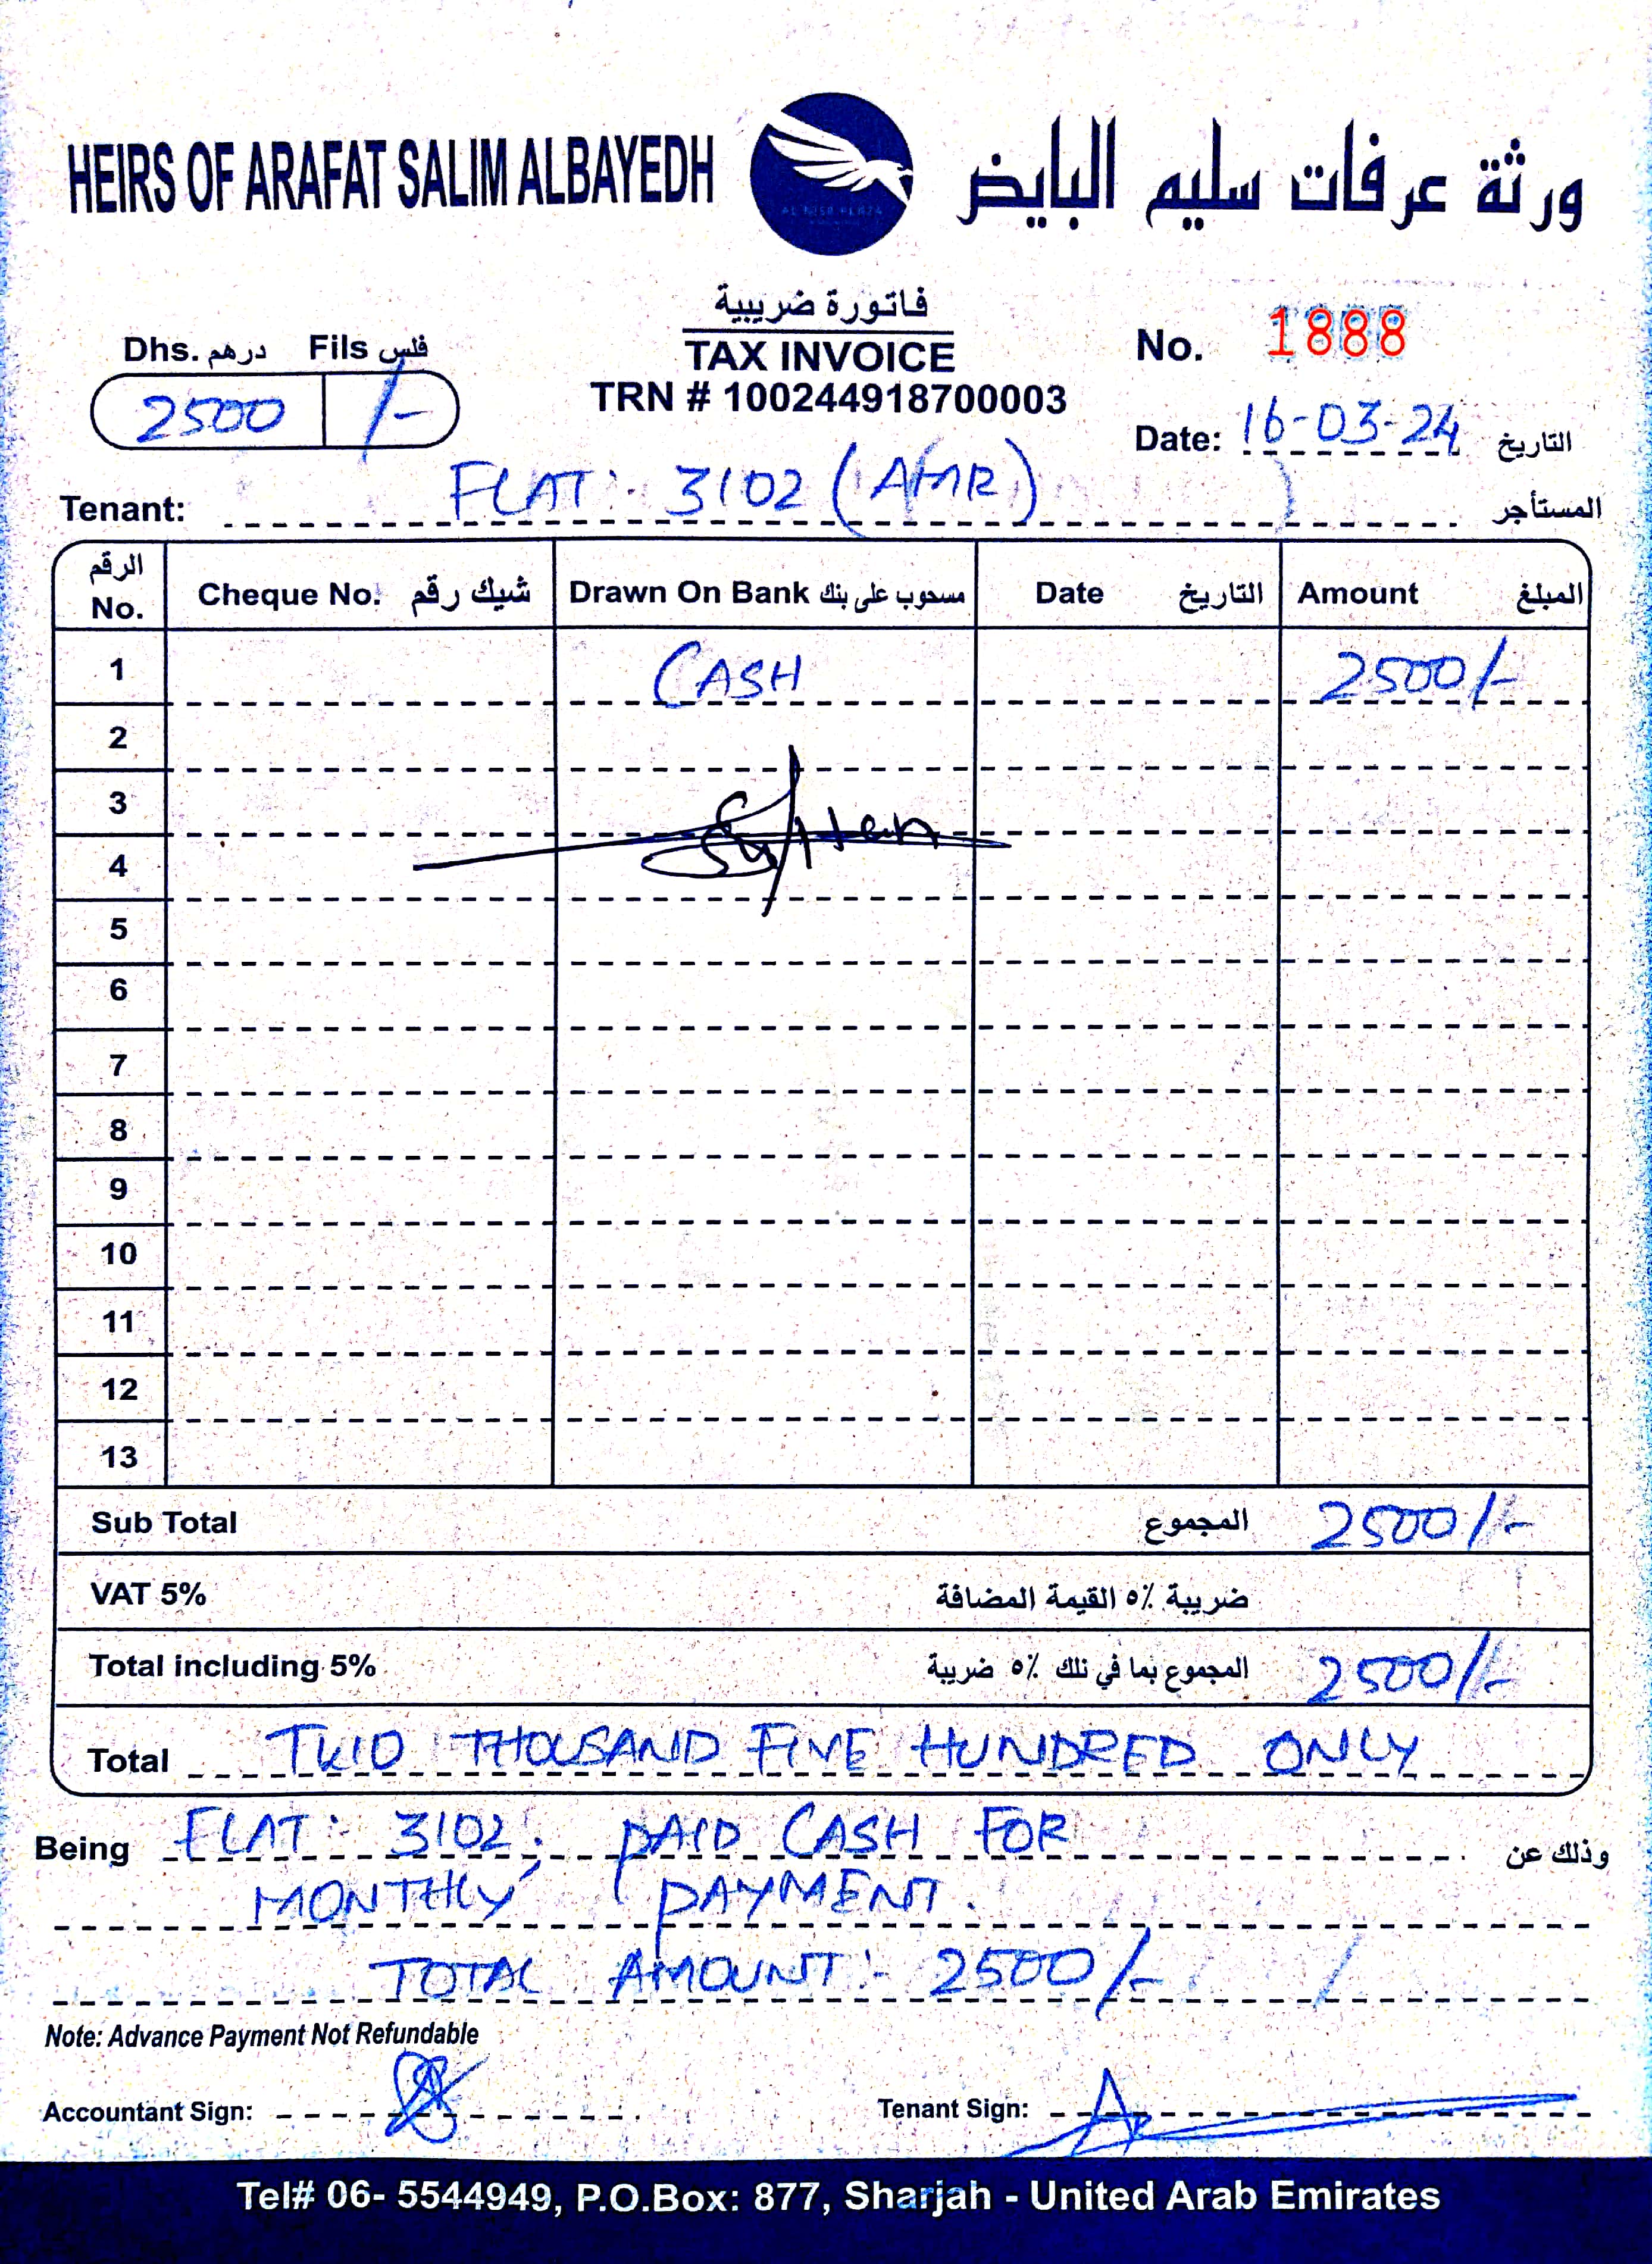 HEIRS OF ARAFAT SALIM ALBAYEDH
ورثة عرفات سليم البايض
AL NISR PLAZA
فاتورة ضريبية
TAX INVOICE
TRN # 100244918700003
Dhs. درهم Fils فلس
2500 /-
No. 1888
Date: 16-03-24 التاريخ
Tenant: FLAT:- 3102 (AMR) المستأجر
الرقم No. Cheque No. شيك رقم Drawn On Bank مسحوب على بنك Date التاريخ Amount المبلغ
1 CASH 2500/-
2
3
4
5
6
7
8
9
10
11
12
13
Sub Total المجموع 2500/-
VAT 5% ضريبة ٥٪ القيمة المضافة
Total including 5% المجموع بما في ذلك ٥٪ ضريبة 2500/-
Total TWO THOUSAND FIVE HUNDRED ONLY
Being FLAT:- 3102; PAID CASH FOR وذلك عن
MONTHLY PAYMENT.
TOTAL AMOUNT:- 2500/-
Note: Advance Payment Not Refundable
Accountant Sign:
Tenant Sign:
Tel# 06- 5544949, P.O.Box: 877, Sharjah - United Arab Emirates